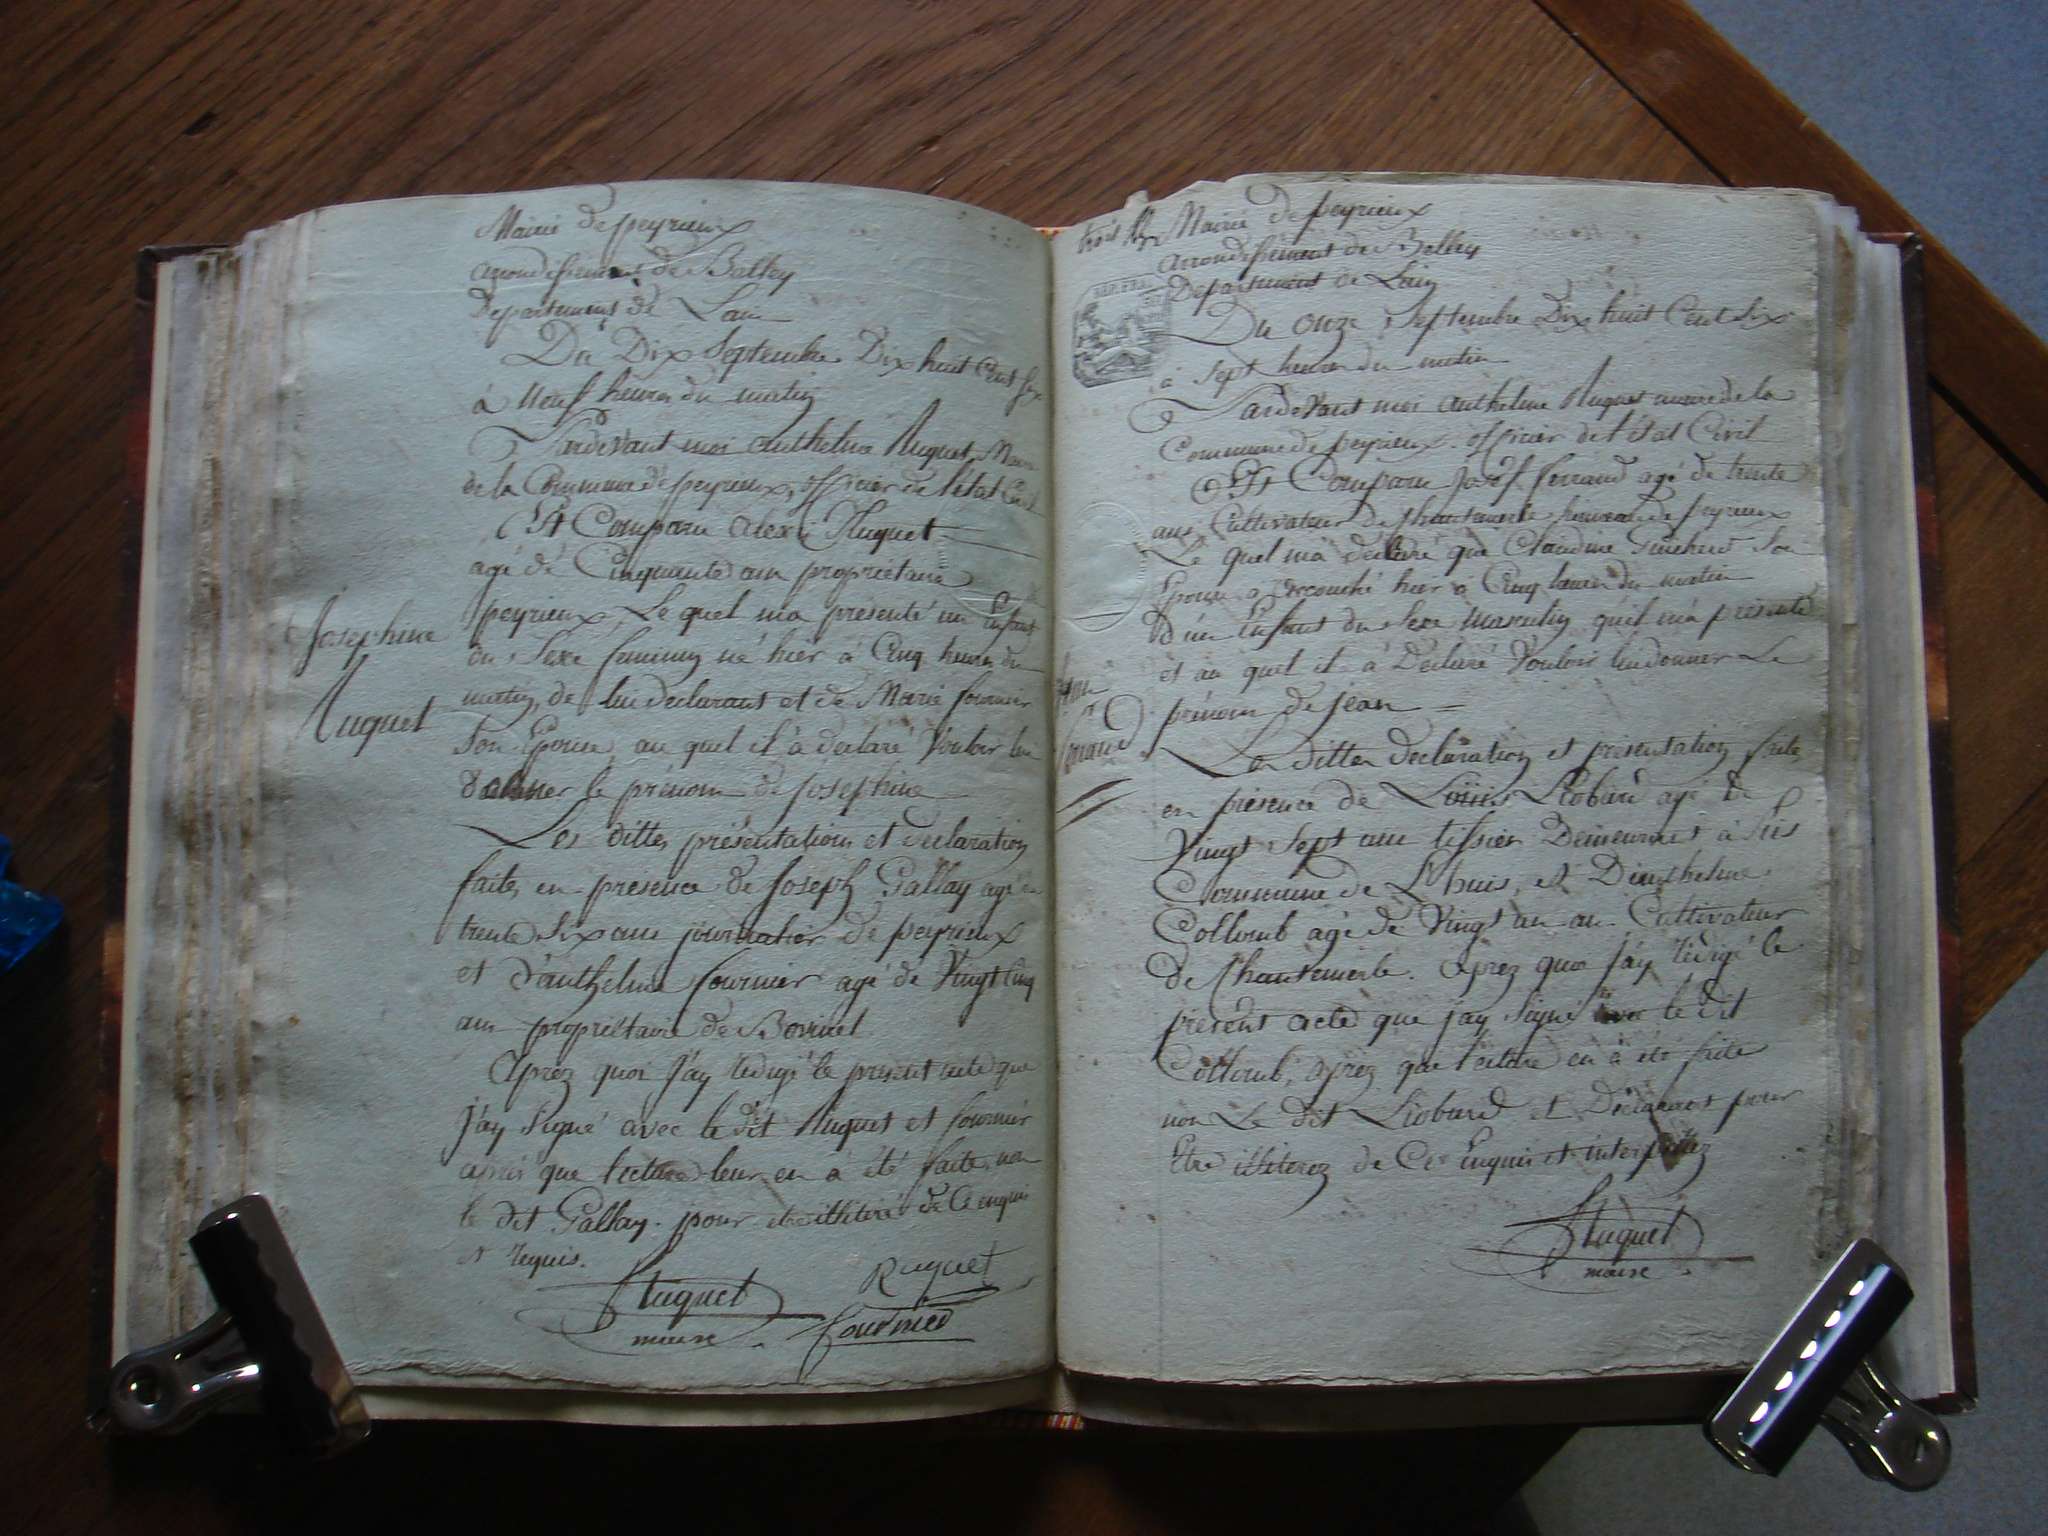 Mairie de peyrieux
arrondissement de Belley
Departement de Lain
Du Dix Septembre Dix huit Cent Six
à Neuf heures du matin
Pardevant moi anthelme Huguet Maire
de la Commune de peyrieux, officier de l'état Civil
Est Comparu alexi Huguet
agé de Cinquante ans propriétaire
peyrieux, Le quel ma présenté un Enfant
du Sexe feminin né hier à Cinq heures du
matin, de lui declarant et de Marie fournier
Son Epouse au quel il à declaré Vouloir lui
donner le prénom de Josephine
Josephine
Huguet
Les dittes présentations et declaration
faites en présence de Joseph Gallay agé de
trente Six ans journalier de peyrieux
et d'anthelme fournier agé de Vingt Cinq
ans propriétaire de Bovinel
Aprez quoi J'ay redigé le présent acte que
J'ay Signé avec le dit Huguet et fournier
après que lecture leur en à été faite, non
le dit Gallay pour etre illiteré de Ce enquis
et requis.
Huguet
maire
Huguet
fournier
trois Mairie de peyrieux
arrondissement de Belley
Departement de Lain
REP. FRA.
Du onze Septembre Dix huit Cent Six
à Sept heures du matin
Pardevant moi anthelme Huguet maire de la
Commune de peyrieux officier de l'état Civil
Est Comparu Josef ferrand agé de trente
ans Cultivateur de Chantemerle hameau de peyrieux
Le quel mà déclaré que Claudine Son
Epouse a accouché hier à Cinq heures du matin
D'un Enfant du Sexe Masculin qu'il mà présenté
et au quel il à Déclaré Vouloir lui donner Le
prénom de jean
Jean
ferrand
Les dittes declaration et présentation faite
en présence de Louis Liobard agé de
Vingt Sept ans tissier Demeurant à
Commune de Lhuis, et D'anthelme
Collomb agé de Vingt un an Cultivateur
de Chantemerle. aprez quoi J'ay rédigé le
présent acte que j'ay Signé avec le dit
Collomb, aprez que lecture en à été faite
non Le dit Liobard et Déclarant pour
Etre illiterez de Ce Enquis et interpellez
Huguet
maire